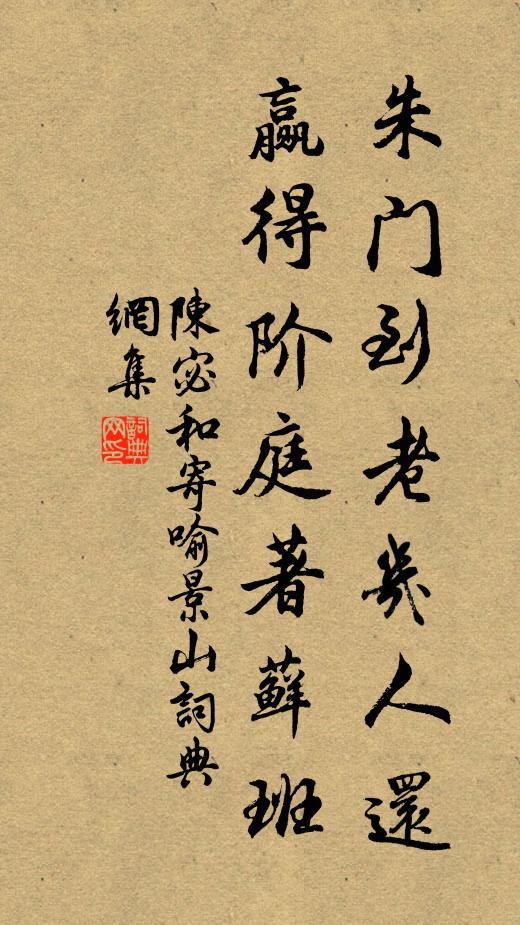 朱门到老幾人還
赢得阶庭著蘚班
陳宓和寄喻景山詞典
網集
詞典
网印